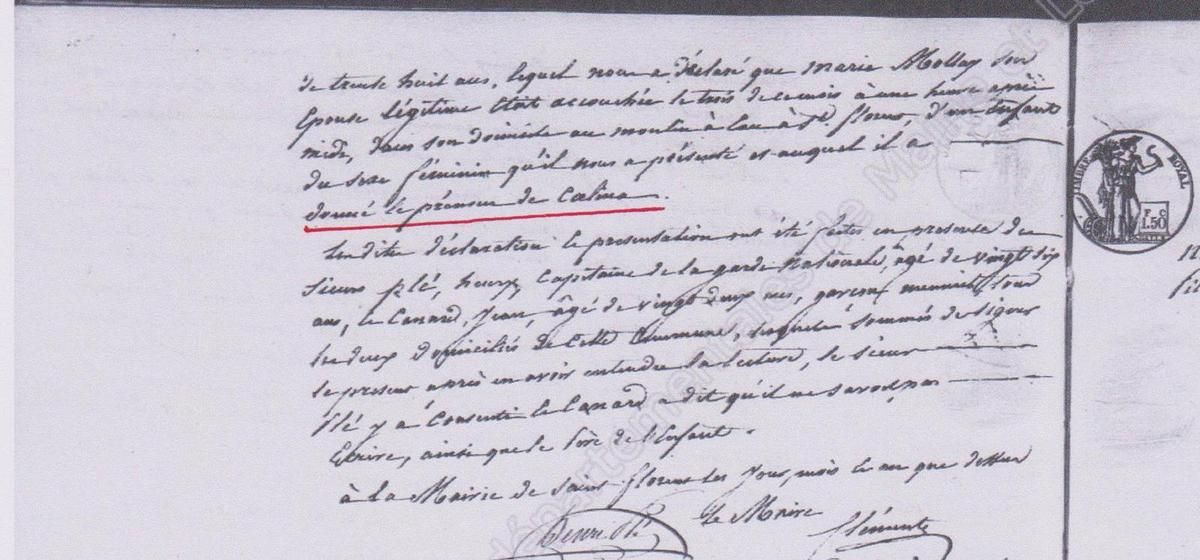 de trente huit ans, lequel nous a déclaré que marie Mollay son
Epouse légitime était accouchée le trois de ce mois à une heure après
midi, dans son domicile au moulin à Eau à St. florent, d'un Enfant
du sexe féminin qu'il nous a présenté et auquel il a
donné le prénom de Coelina.
les dites déclaration & présentation ont été faites en presence des
sieurs plé, henry, Capitaine de la garde Nationale, âgé de vingt six
ans, & Canard, Jean, âgé de vingt deux ans, garçon meunier, tous
les deux domiciliés de cette Commune, lesquels sommés de signer
le present après en avoir entendu la lecture, le sieur
Plé y a Consenti & Canard a dit qu'il ne savoit pas
Ecrire, ainsi que le Père de l'Enfant.
à la Mairie de Saint florent les Jour, mois & an que dessus
le Maire
henri Plé
Clémente
TIMBRE ROYAL
F. C.
1.50